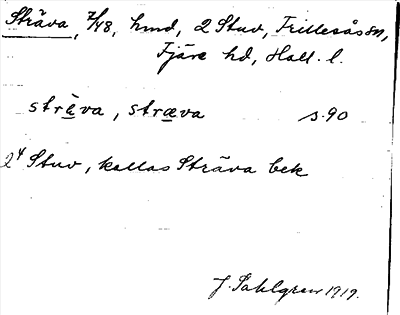 Sträva, 7/48, hmd, 2 Stuv, Frillesås sn,
Fjäre hd, Hall. l.
strȁva, stræva s. 90
2⁴ Stuv, kallas Sträva bek
J. Sahlgren 1919.